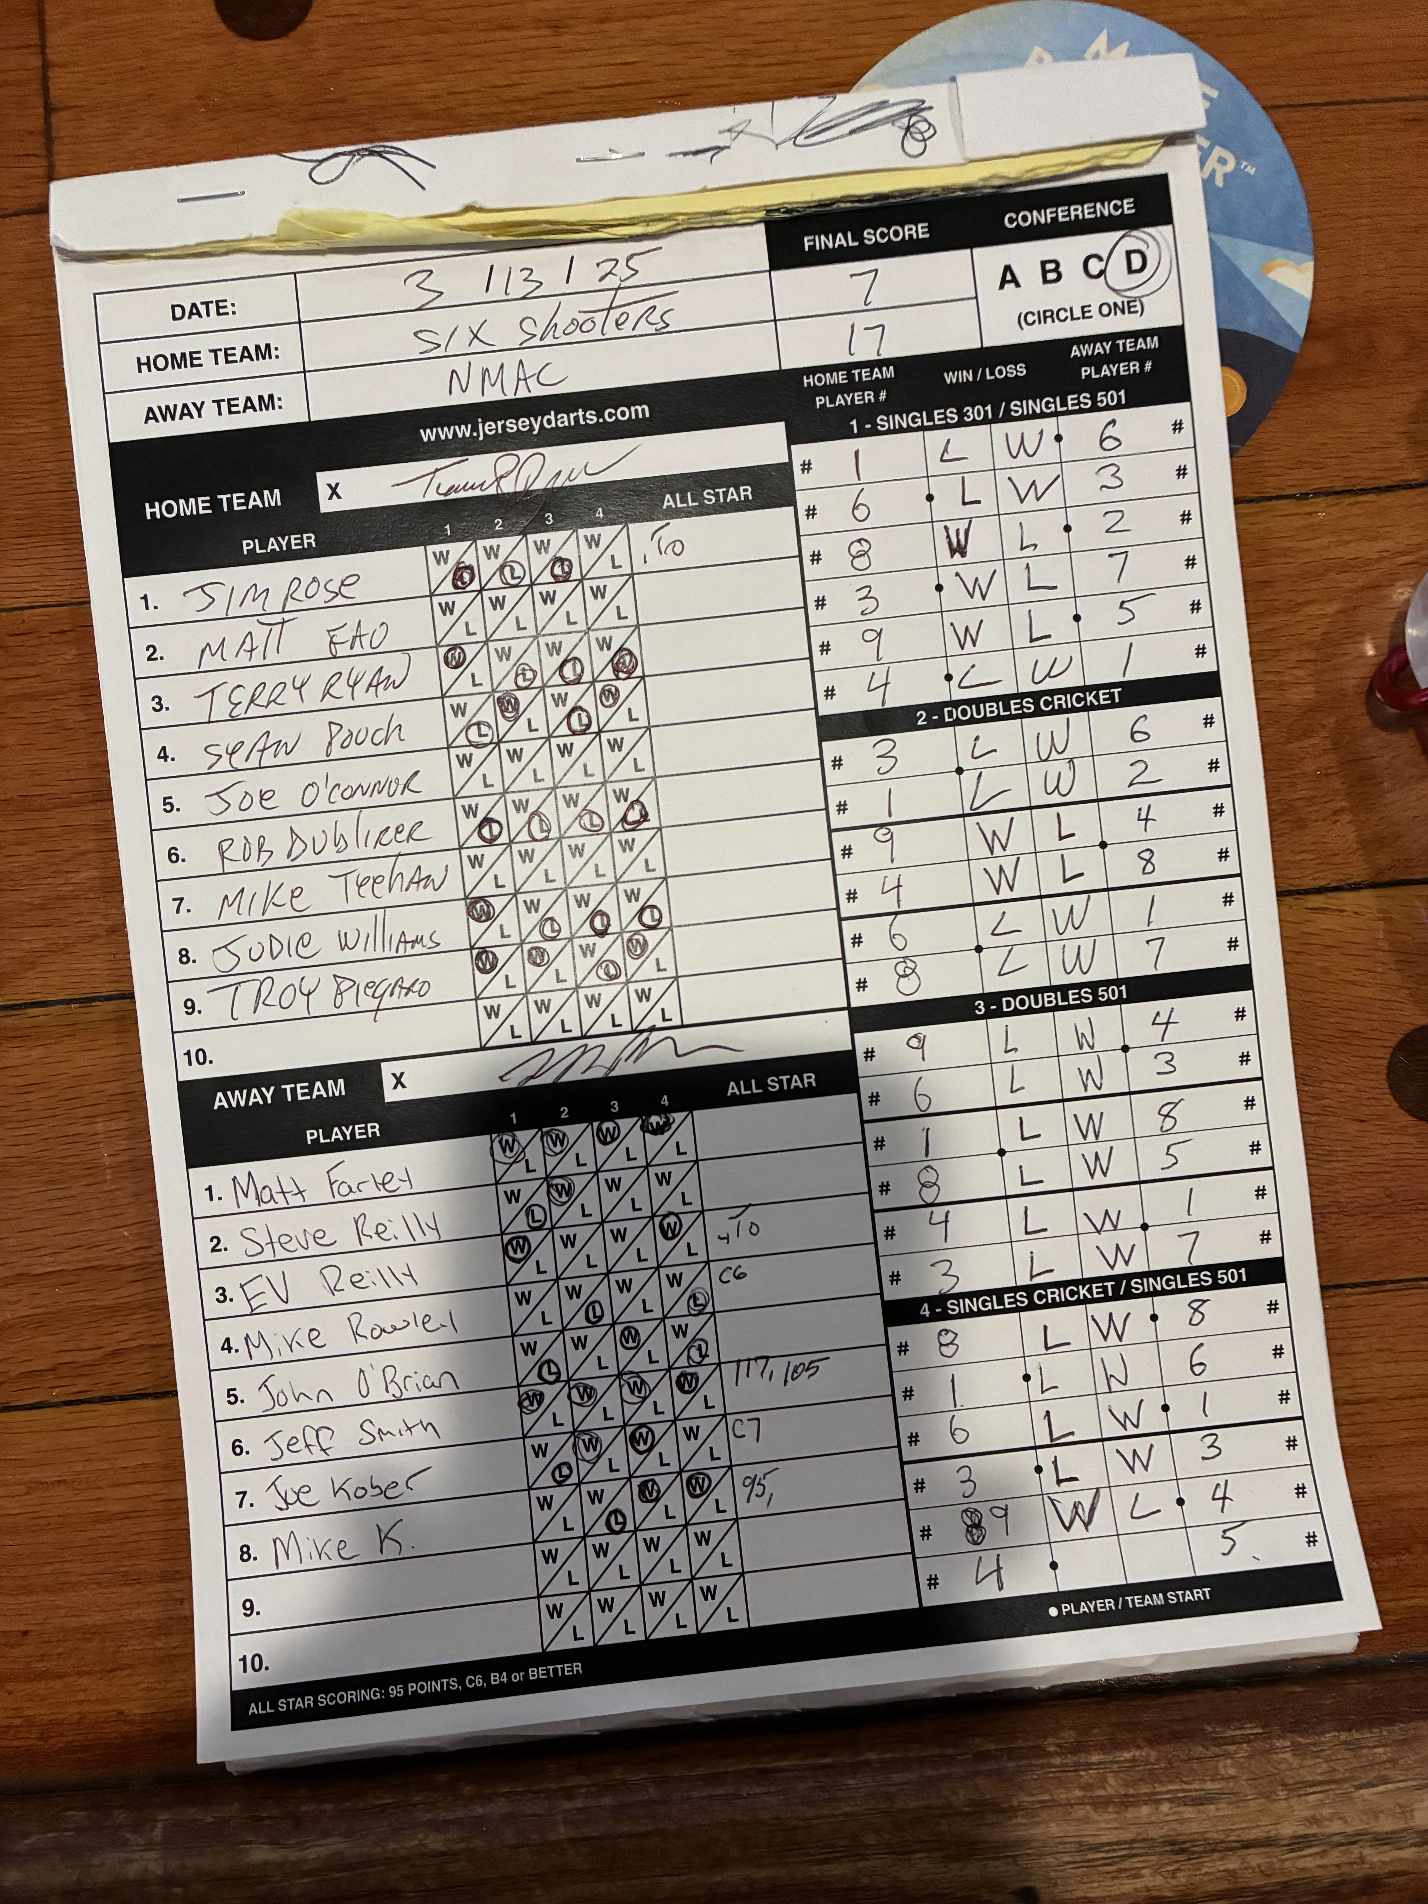 FINAL SCORE CONFERENCE
DATE: 3 /13 / 25 7 A B C D
HOME TEAM: SIX Shooters 17 (CIRCLE ONE)
AWAY TEAM: NMAC
www.jerseydarts.com
HOME TEAM X
PLAYER 1 2 3 4 ALL STAR
1. JIM ROSE W L W L W L W L , TO
2. MATT W L W L W L W L
3. TERRY RYAN W L W L W L W L
4. SEAN W L W L W L W L
5. JOE O'CONNOR W L W L W L W L
6. ROB W L W L W L W L
7. MIKE TEEHAN W L W L W L W L
8. JUDIE WILLIAMS W L W L W L W L
9. TROY W L W L W L W L
10. W L W L W L W L
AWAY TEAM X
PLAYER 1 2 3 4 ALL STAR
1. Matt Farley W L W L W L W L
2. Steve Reilly W L W L W L W L
3. EV Reilly W L W L W L W L TO
4. Mike W L W L W L W L C6
5. John O'Brian W L W L W L W L
6. Jeff Smith W L W L W L W L 117, 105
7. Joe Kober W L W L W L W L C7
8. Mike K. W L W L W L W L 95,
9. W L W L W L W L
10. W L W L W L W L
ALL STAR SCORING: 95 POINTS, C6, B4 or BETTER
HOME TEAM PLAYER # WIN / LOSS AWAY TEAM PLAYER #
1 - SINGLES 301 / SINGLES 501
# 1 L W 6 #
# 6 L W 3 #
# 8 W L 2 #
# 3 W L 7 #
# 9 W L 5 #
# 4 L W 1 #
2 - DOUBLES CRICKET
# 3 L W 6 #
# 1 L W 2 #
# 9 W L 4 #
# 4 W L 8 #
# 6 L W 1 #
# 8 L W 7 #
3 - DOUBLES 501
# 9 L W 4 #
# 6 L W 3 #
# 1 L W 8 #
# 8 L W 5 #
# 4 L W 1 #
# 3 L W 7 #
4 - SINGLES CRICKET / SINGLES 501
# 8 L W 8 #
# 1 L W 6 #
# 6 L W 1 #
# 3 L W 3 #
# 9 W L 4 #
# 4 5 #
PLAYER / TEAM START